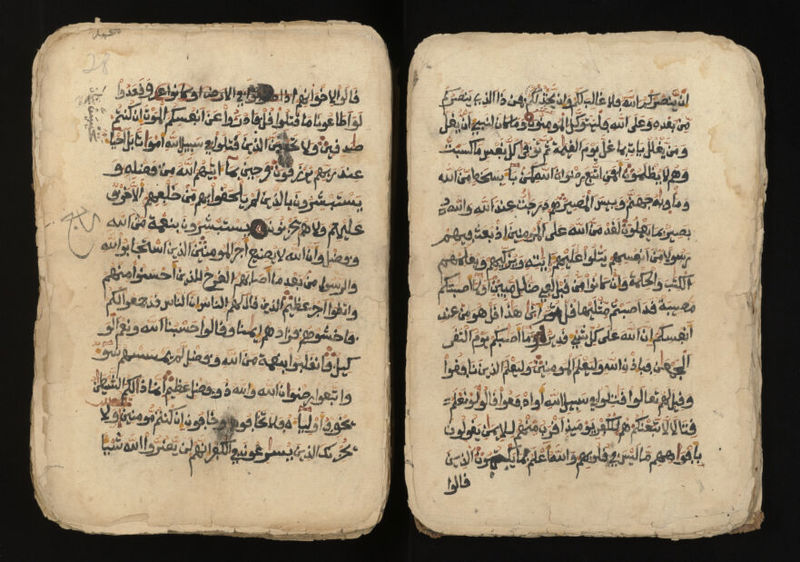 ان ينصركم الله فلا غالب لكم وان يخذلكم فمن ذا الذي ينصركم
من بعده وعلى الله فليتوكل المومنون وما كان لنبي ان يغل
ومن يغلل يات بما غل يوم القيمة ثم توفى كل نفس ما كسبت
وهم لا يظلمون افمن اتبع رضوان الله كمن باء بسخط من الله
وماويه جهنم وبيس المصير هم درجت عند الله والله
بصير بما يعملون لقد من الله على المومنين اذ بعث فيهم
رسولا من انفسهم يتلوا عليهم ايته ويزكيهم ويعلمهم
الكتب والحكمة وان كانوا من قبل لفي ضلل مبين اولما اصبتكم
مصيبة قد اصبتم مثليها قلتم انى هذا قل هو من عند
انفسكم ان الله على كل شيء قدير وما اصبكم يوم التقى
الجمعن فباذن الله وليعلم المومنين وليعلم الذين نافقوا
وقيل لهم تعالوا قتلوا في سبيل الله او ادفعوا قالوا لو نعلم
قتالا لاتبعنكم هم للكفر يوميذ اقرب منهم للايمن يقولون
بافوههم ما ليس في قلوبهم والله اعلم بما يكتمون الذين
قالوا
28
قالوا لاخوانهم وقعدوا
لو اطاعونا ما قتلوا قل فادرءوا عن انفسكم الموت ان كنتم
صدقين ولا تحسبن الذين قتلوا في سبيل الله امواتا بل احياء
عند ربهم يرزقون فرحين بما اتيهم الله من فضله و
يستبشرون بالذين لم يلحقوا بهم من خلفهم الا خوف
عليهم ولا هم يحزنون يستبشرون بنعمة من الله
وفضل وان الله لا يضيع اجر المومنين الذين استجابوا لله
والرسول من بعد ما اصابهم القرح للذين احسنوا منهم
واتقوا اجر عظيم الذين قال لهم الناس ان الناس قد جمعوا لكم
فاخشوهم فزادهم ايمنا وقالوا حسبنا الله ونعم الو
كيل فانقلبوا بنعمة من الله وفضل لم يمسسهم سوء
واتبعوا رضوان الله والله ذو فضل عظيم انما ذلكم الشيطن
يخوف اولياءه فلا تخافوهم وخافون ان كنتم مومنين ولا
يحزنك الذين يسرعون في الكفر انهم لن يضروا الله شيئا